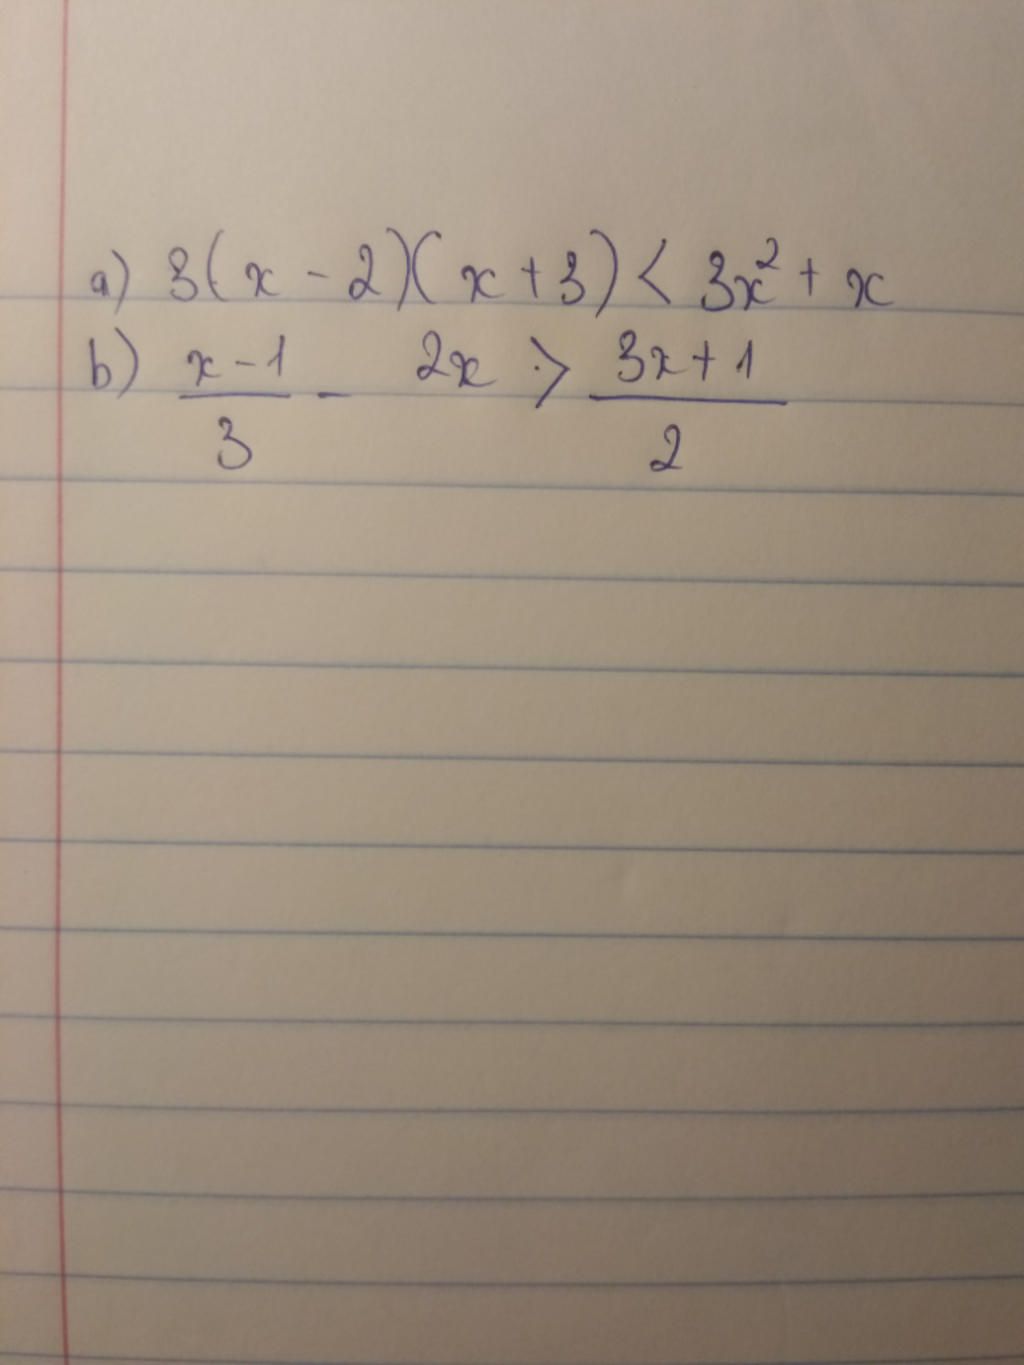 a) 3(x - 2)(x + 3) < 3x² + x
b) \frac{x - 1}{3} - 2x > \frac{3x + 1}{2}